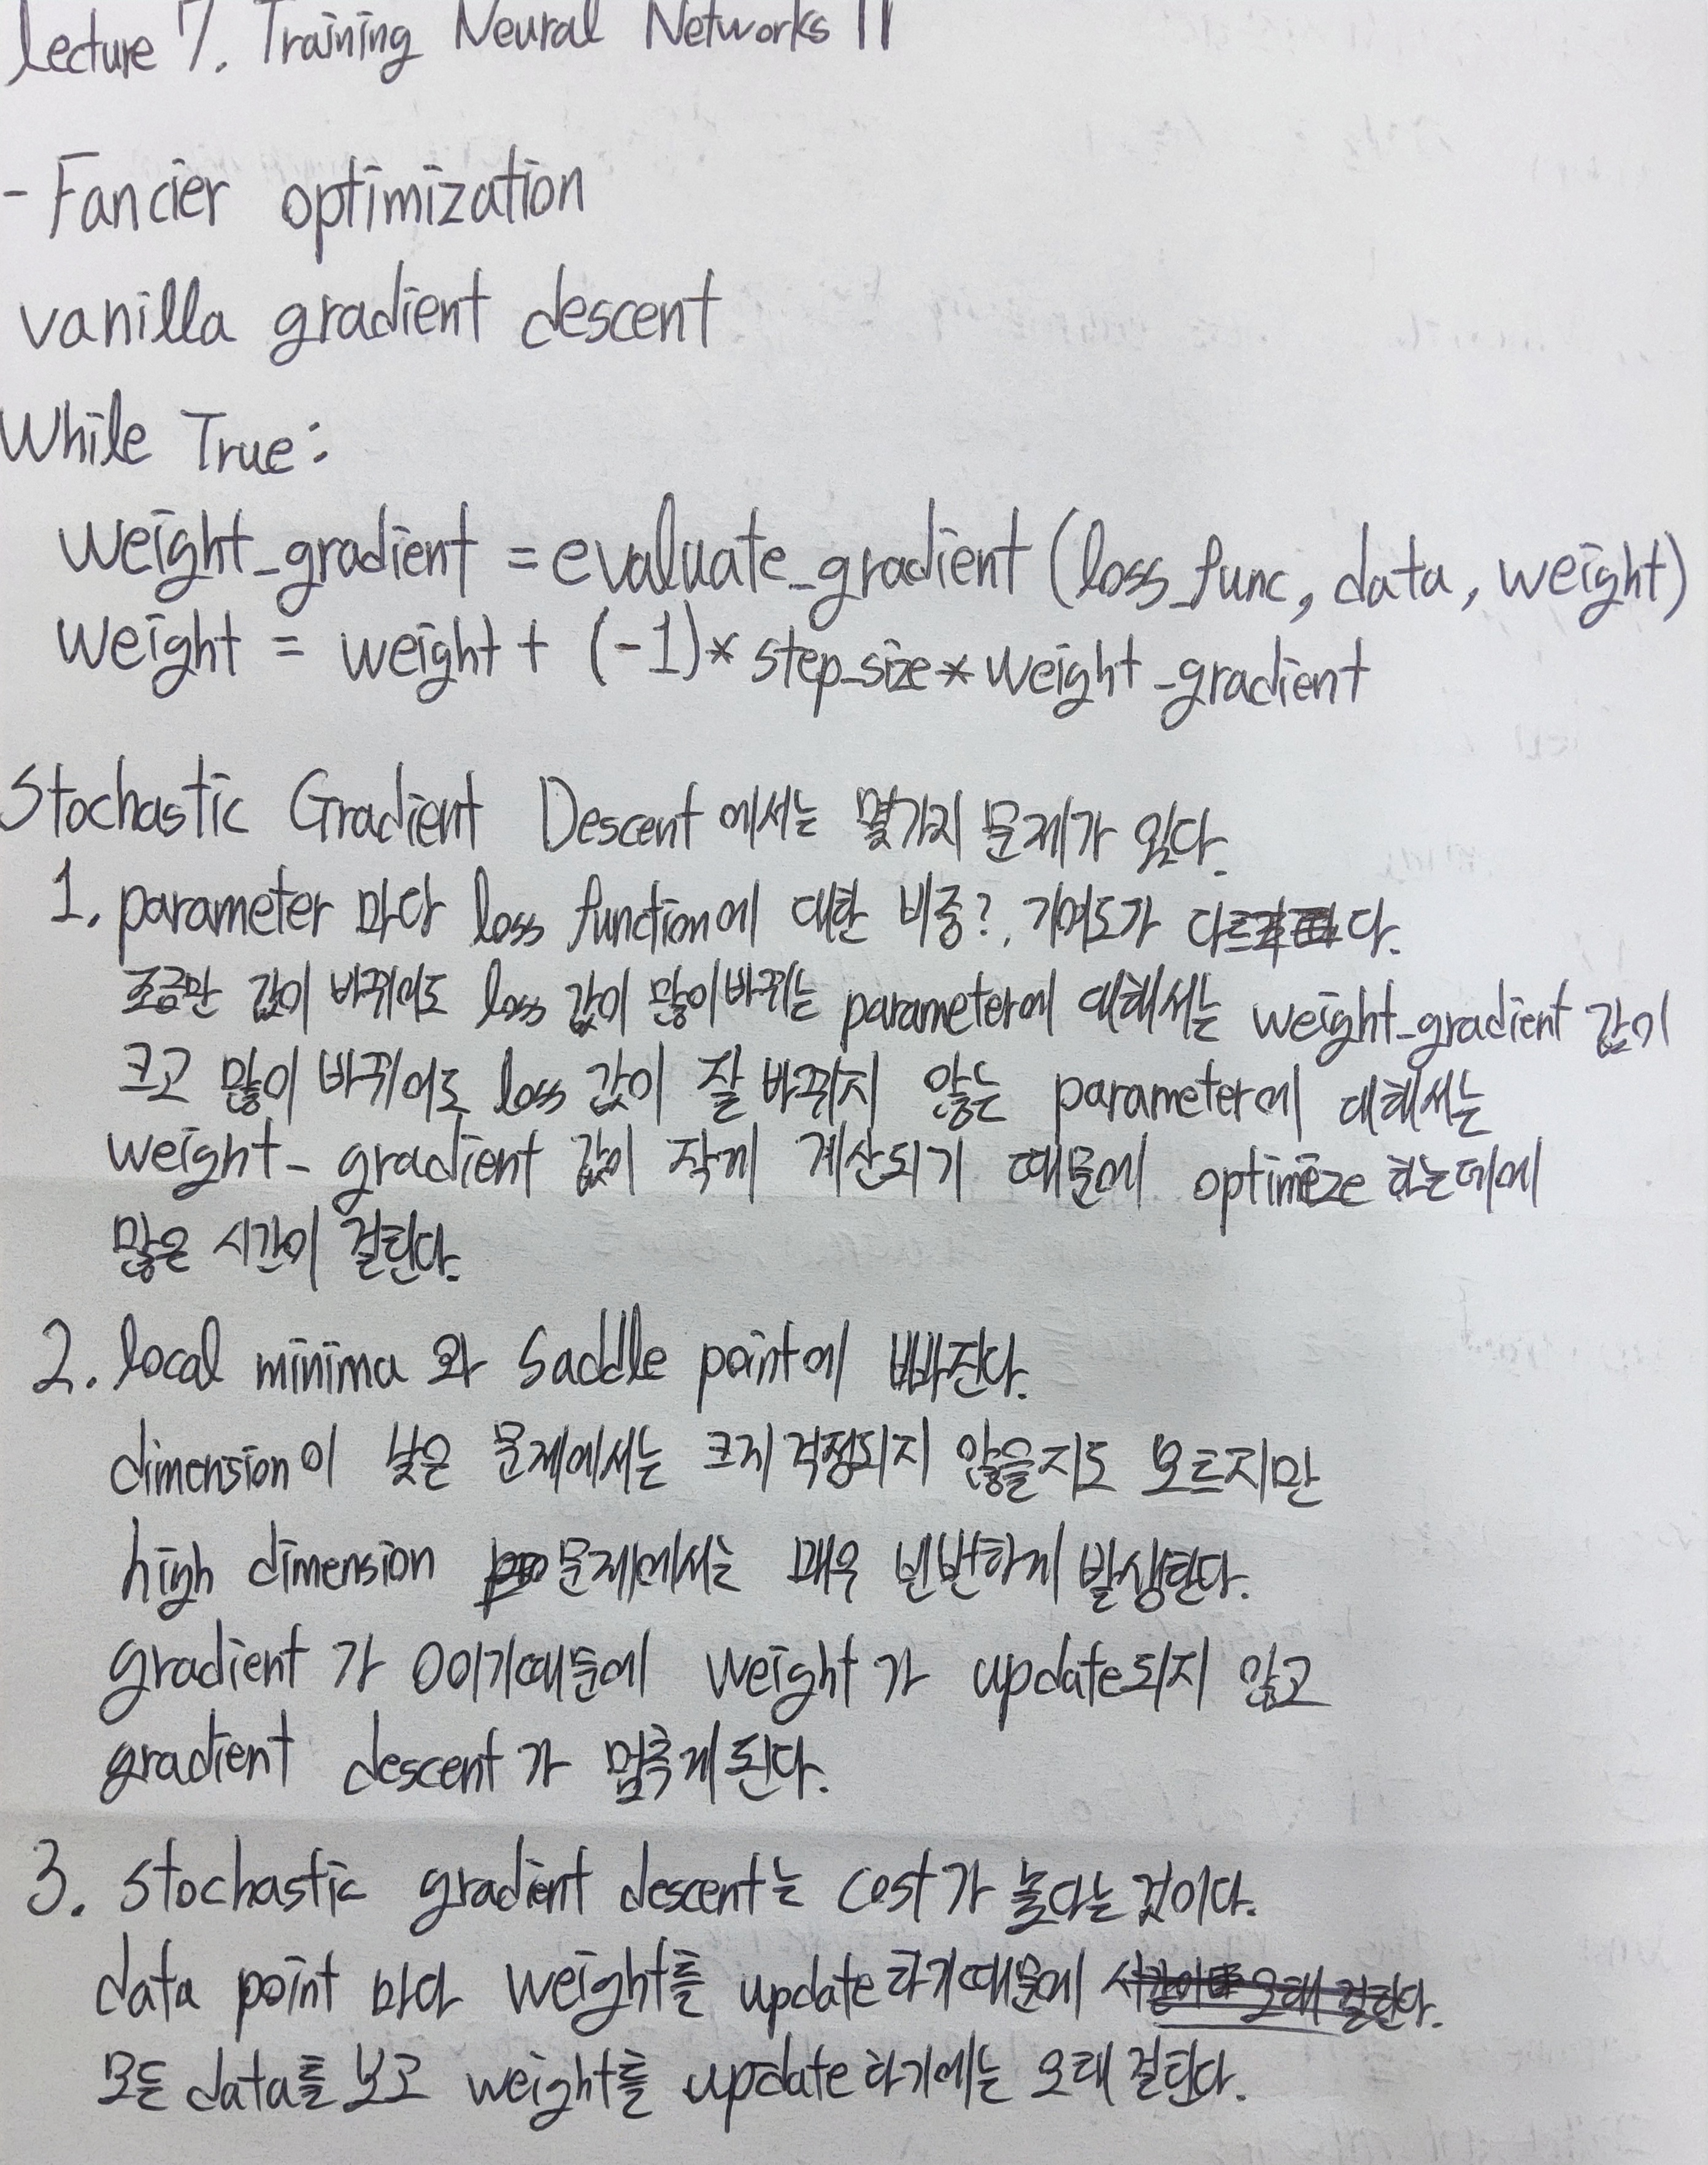 Lecture 7. Training Neural Networks II
- Fancier optimization
vanilla gradient descent
While True:
weight_gradient = evaluate_gradient (loss_func, data, weight)
weight = weight + (-1)* step_size * weight_gradient
Stochastic Gradient Descent 에서는 몇가지 문제가 있다.
1. parameter 마다 loss function에 대한 비중?, 기여도가 다르다.
조금만 값이 바뀌어도 loss 값이 많이바뀌는 parameter에 대해서는 weight_gradient 값이
크고 많이 바뀌어도 loss 값이 잘 바뀌지 않는 parameter에 대해서는
weight_gradient 값이 작게 계산되기 때문에 optimize 하는데에
많은 시간이 걸린다.
2. local minima 와 saddle point에 빠진다.
dimension이 낮은 문제에서는 크게 걱정되지 않을지도 모르지만
high dimension 문제에서는 매우 빈번하게 발생한다.
gradient 가 0이기때문에 weight 가 update되지 않고
gradient descent가 멈추게 된다.
3. stochastic gradient descent는 cost가 높다는 것이다.
data point 마다 weight를 update 하기때문에 시간이 오래 걸린다.
모든 data를 보고 weight를 update 하기에는 오래 걸린다.